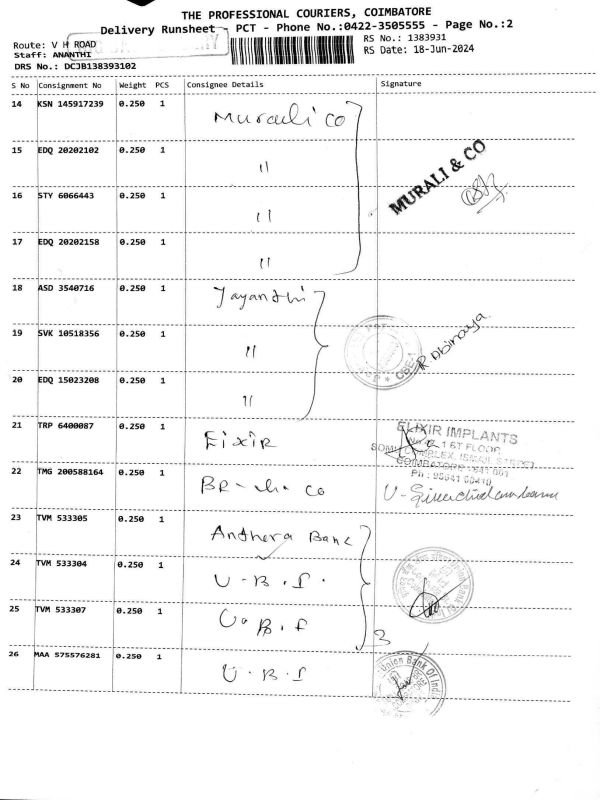 THE PROFESSIONAL COURIERS, COIMBATORE
Delivery Runsheet - PCT - Phone No.:0422-3505555 - Page No.:2
Route: V H ROAD
RS No.: 1383931
Staff: ANANTHI
RS Date: 18-Jun-2024
DRS No.: DCJB138393102
S No Consignment No Weight PCS Consignee Details Signature
14 KSN 145917239 0.250 1 Murali co
MURALI & CO
15 EDQ 20202102 0.250 1 "
16 STY 6066443 0.250 1 "
17 EDQ 20202158 0.250 1 "
18 ASD 3540716 0.250 1 Jayanthi
19 SVK 10518356 0.250 1 " R Abinaya
20 EDQ 15023208 0.250 1 "
21 TRP 6400087 0.250 1 Elixir
ELIXIR IMPLANTS
1 ST FLOOR,
COMPLEX,
COIMBATORE - 641 001
22 TMG 200588164 0.250 1 BR co
23 TVM 533305 0.250 1 Andhra Bank
24 TVM 533304 0.250 1 U.B.I.
25 TVM 533307 0.250 1 U.B.I
3
26 MAA 575576281 0.250 1 U.B.I
Union Bank Of